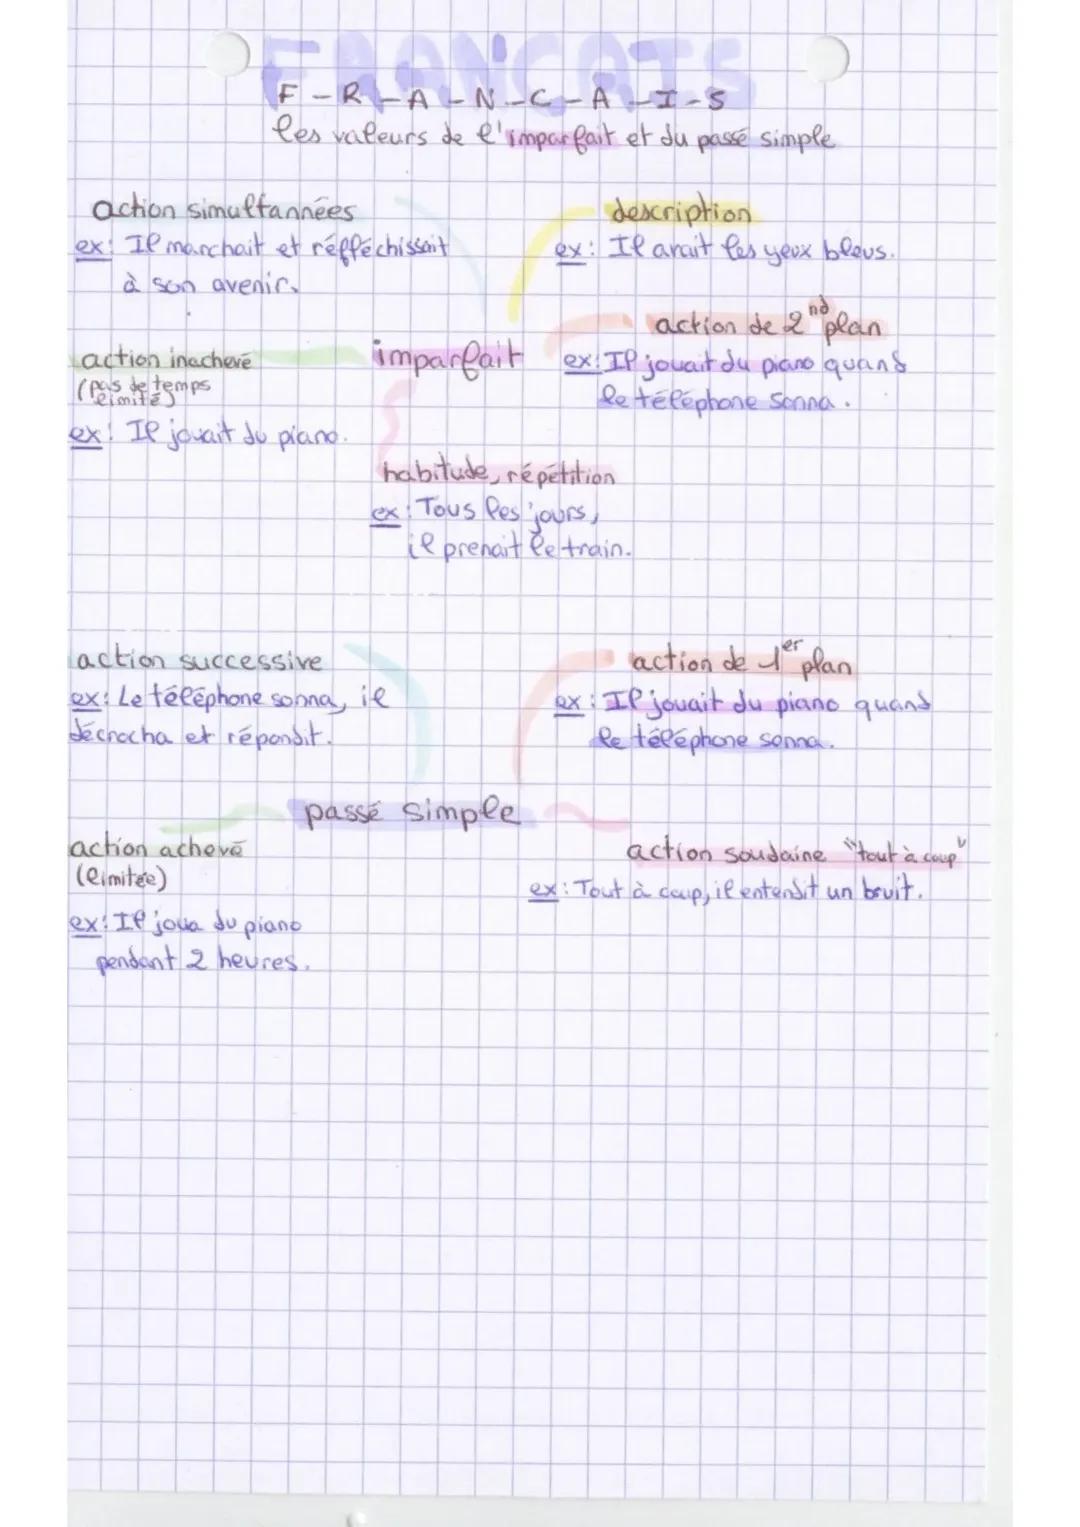 FRANCAIS
F-R-A-N-C-A-I-S
les valeurs de l'imparfait et du passé simple
action simultannées
ex: Il marchait et réfléchissait
à son avenir.
description
ex: Il avait les yeux bleus.
action de 2nd plan
ex: Il jouait du piano quand
le téléphone sonna.
imparfait
action inachevé
(pas de temps
limité)
ex: Il jouait du piano.
habitude, répétition
ex: Tous les jours,
il prenait le train.
action successive
ex: Le téléphone sonna, il
décrocha et répondit.
action de 1er plan
ex: Il jouait du piano quand
le téléphone sonna.
passé simple
action achevé
(limitée)
ex: Il joua du piano
pendant 2 heures.
action soudaine "tout à coup"
ex: Tout à coup, il entendit un bruit.